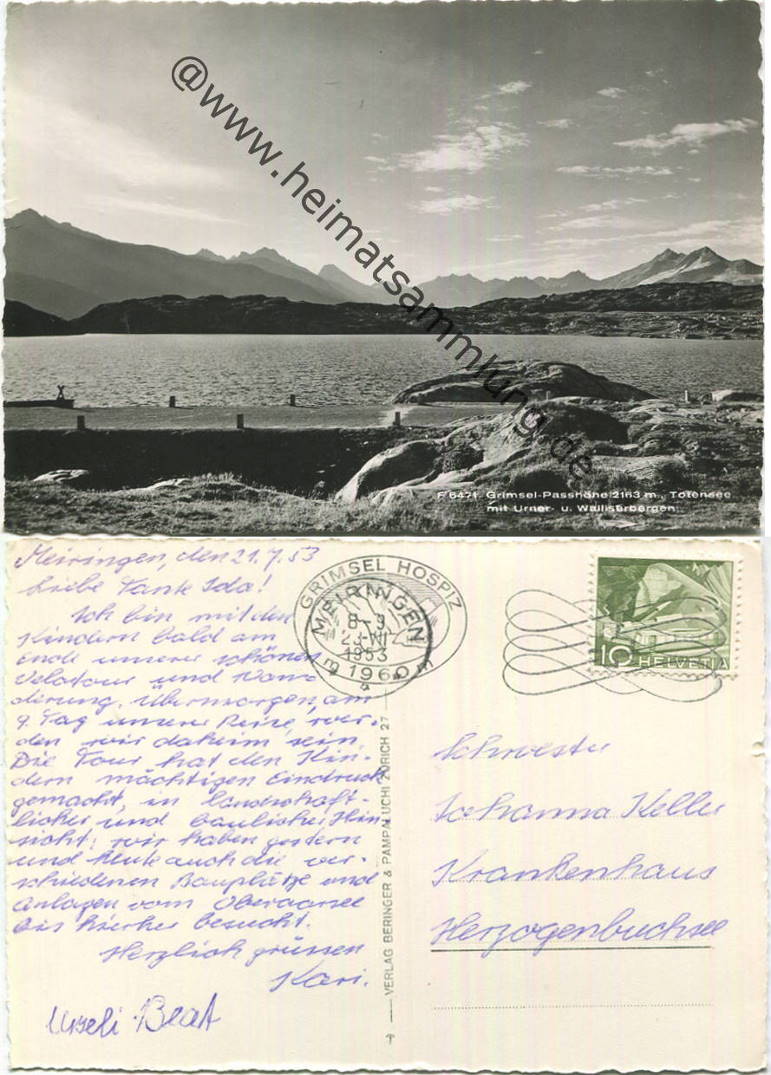 @www.heimatsammlung.de
F 6471 Grimsel-Passhöhe 2163 m, Totensee
mit Urner- u. Walliserbergen
Meiringen, den 21.7.53
Liebe Tante Ida!
Ich bin mit den
Kindern bald am
Ende unserer schönen
Velotour und Wan-
derung. Übermorgen, am
9. Tag unserer Reise, wer-
den wir daheim sein.
Die Tour hat den Kin-
dern mächtigen Eindruck
gemacht, in landschaft-
licher und baulicher Hin-
sicht; wir haben gestern
und heute auch die ver-
schiedenen Bauplätze und
Anlagen vom Oberaarsee
bis hierher besucht.
Herzlich grüssen
Kari.
Urseli Beat
GRIMSEL HOSPIZ
MEIRINGEN
1953
1960
VERLAG BERINGER & PAMPALUCHI ZÜRICH 27
10 HELVETIA
Schwester
Johanna Keller
Krankenhaus
Herzogenbuchsee